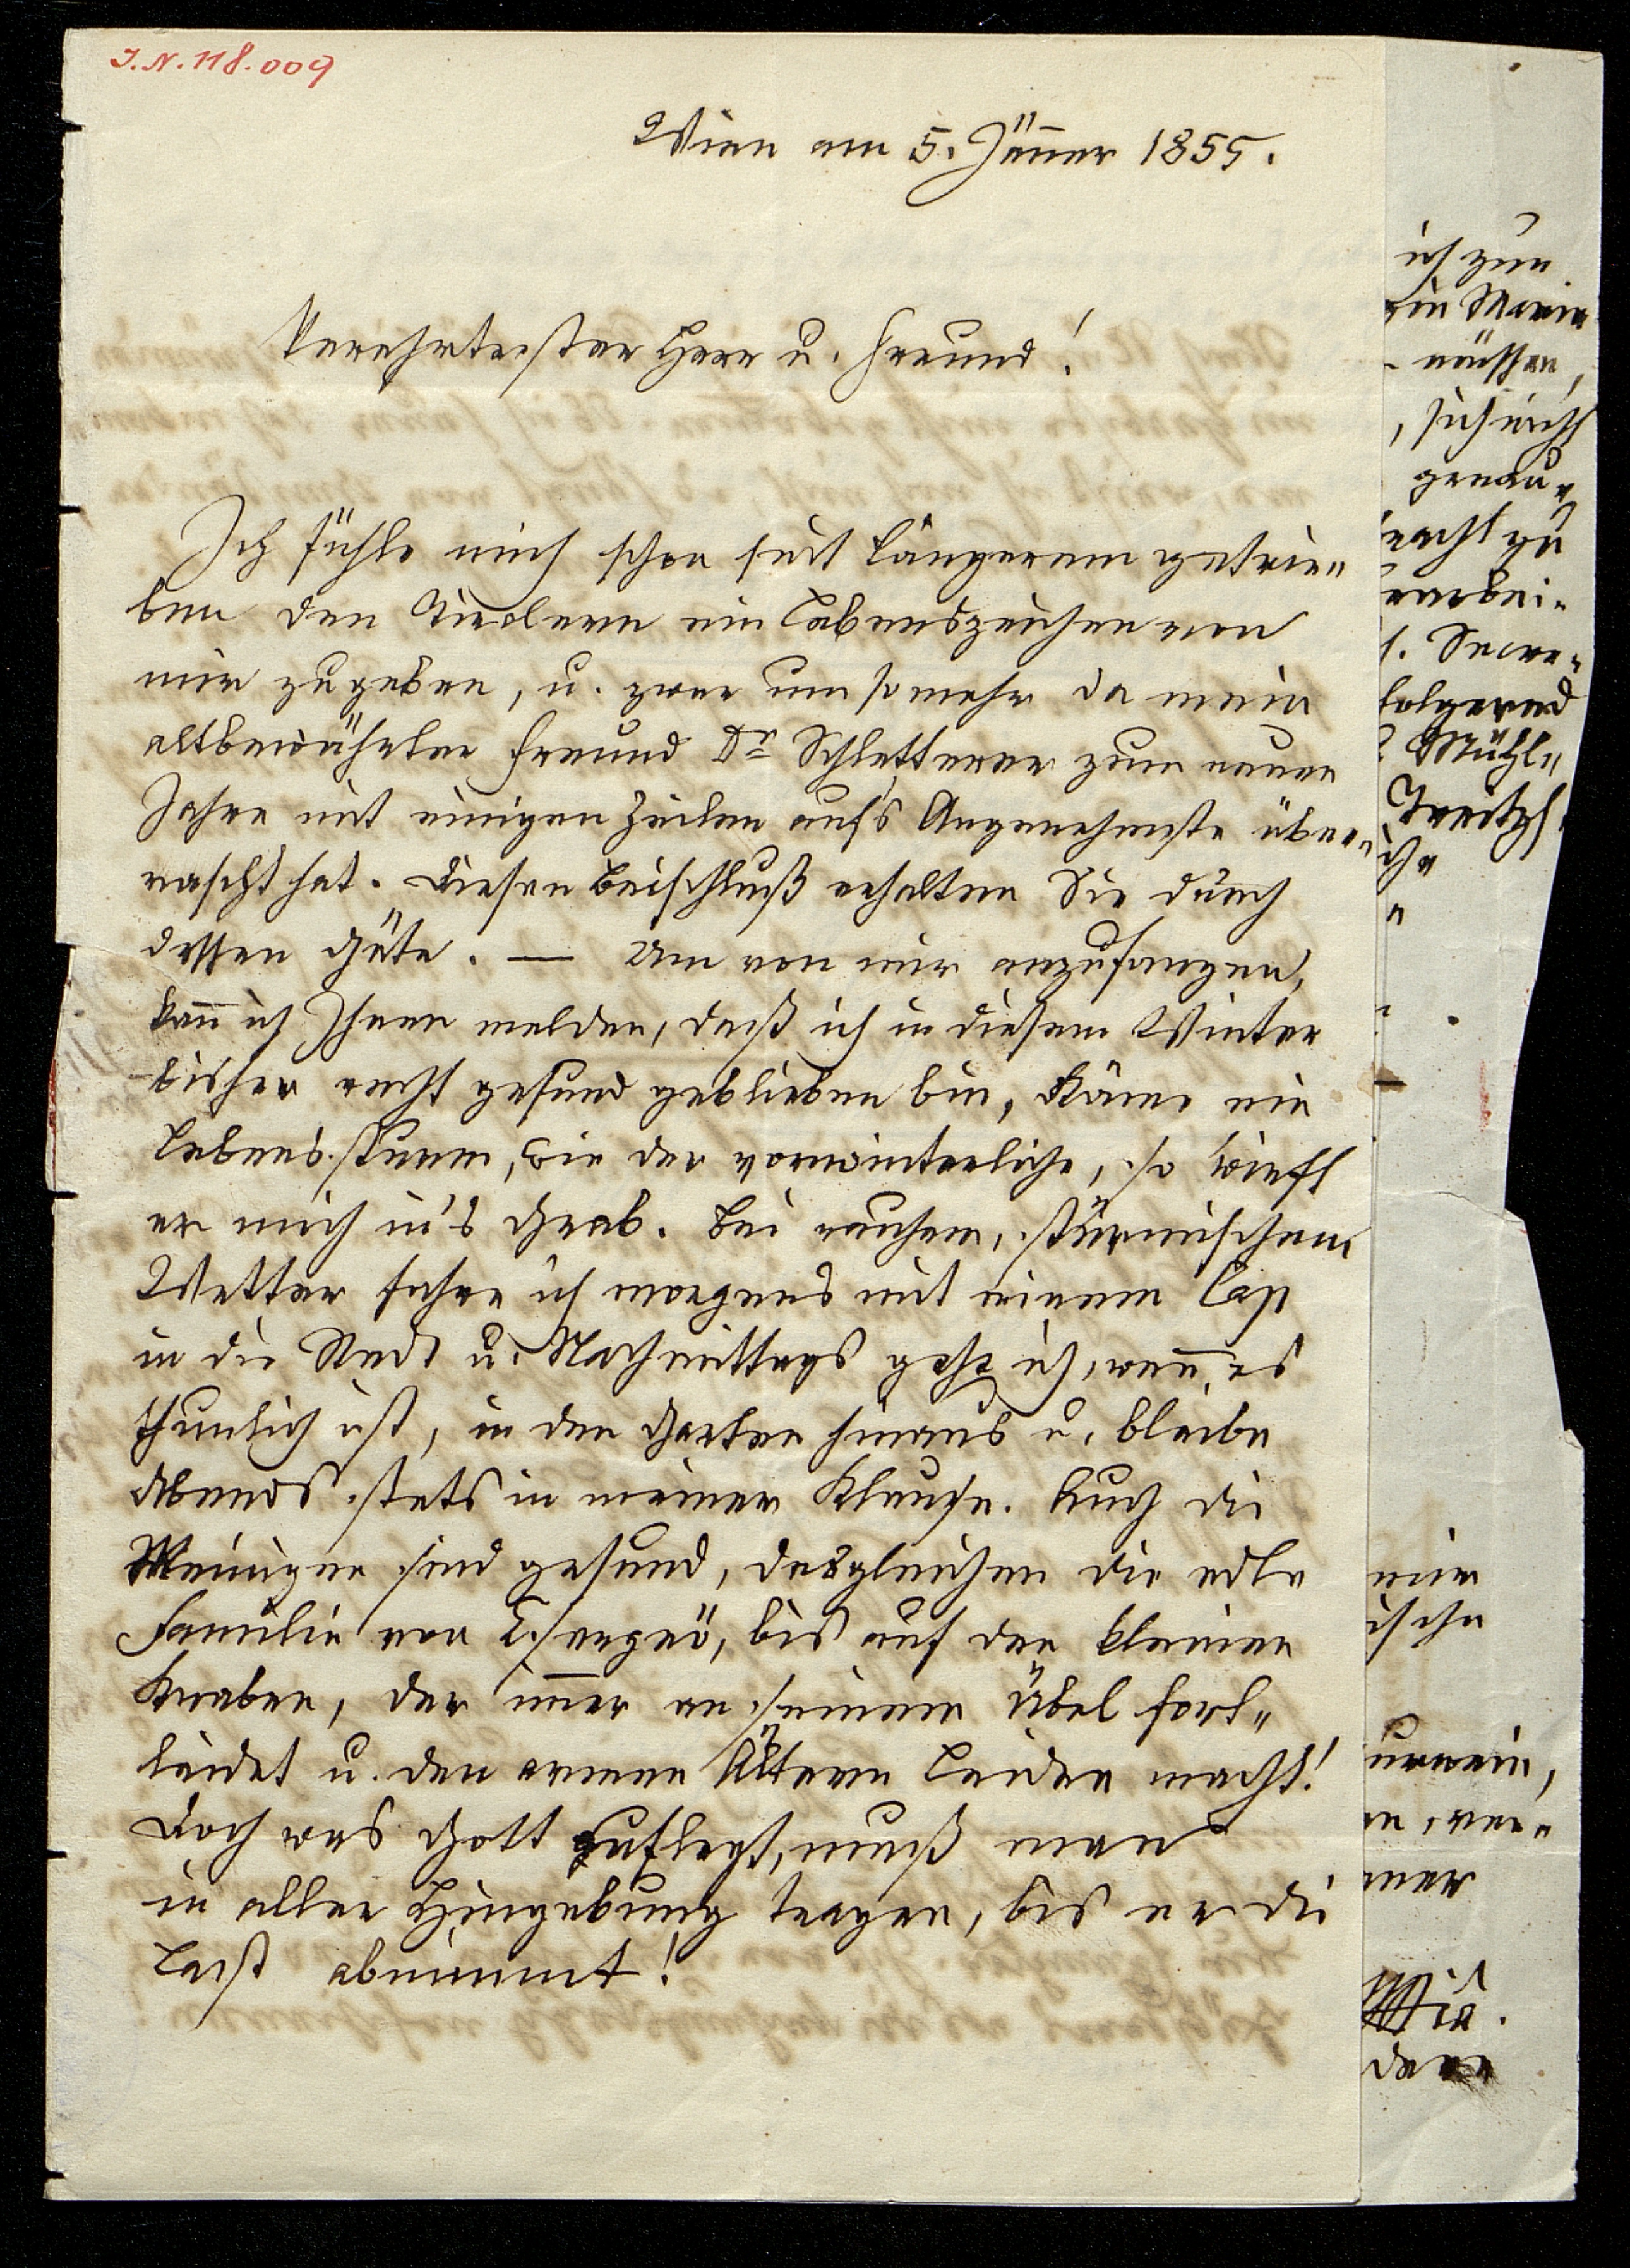 I.N. 118.009
Wien am 5. Jänner 1855.
Verehrtester Herr u. Freund!
Ich fühle mich schon seit Längerem getrie-
ben den Tirolern ein Lebenszeichen von
mir zu geben, u. zwar um so mehr da mein
altbewährter Freund Dr Schletterer zum neuen
Jahre mit einigen Zeilen auf's Angenehmste über-
rascht hat. Diesen Beischluß erhalten Sie durch
dessen Güte. — Um von mir anzufangen,
kann ich Ihnen melden, daß ich in diesem Winter
bisher recht gesund geblieben bin, käme ein
Lebenssturm, wie der vorwinterliche, so wirft
er mich in's Grab. Bei rauhem, stürmischem
Wetter fahre ich morgens mit einem
in die Stadt u. Nachmittags gehe ich, wenn es
thunlich ist, in den Garten hinaus u. bleibe
Abends stets in meiner Klause. Auch die
Meinigen sind gesund, desgleichen die edle
Familie von bis auf den kleinen
Knaben, der immer an seinem Übel fort-
leidet u. den armen Ältern Leiden macht!
Doch was Gott auflegt, muß man
in aller Hingebung tragen, bis er die
Last abnimmt!
ich zum
ein Marie
müssen,
, sich nicht
genau-
nacht zu
folgend
Mühl-
mir
ische
mer